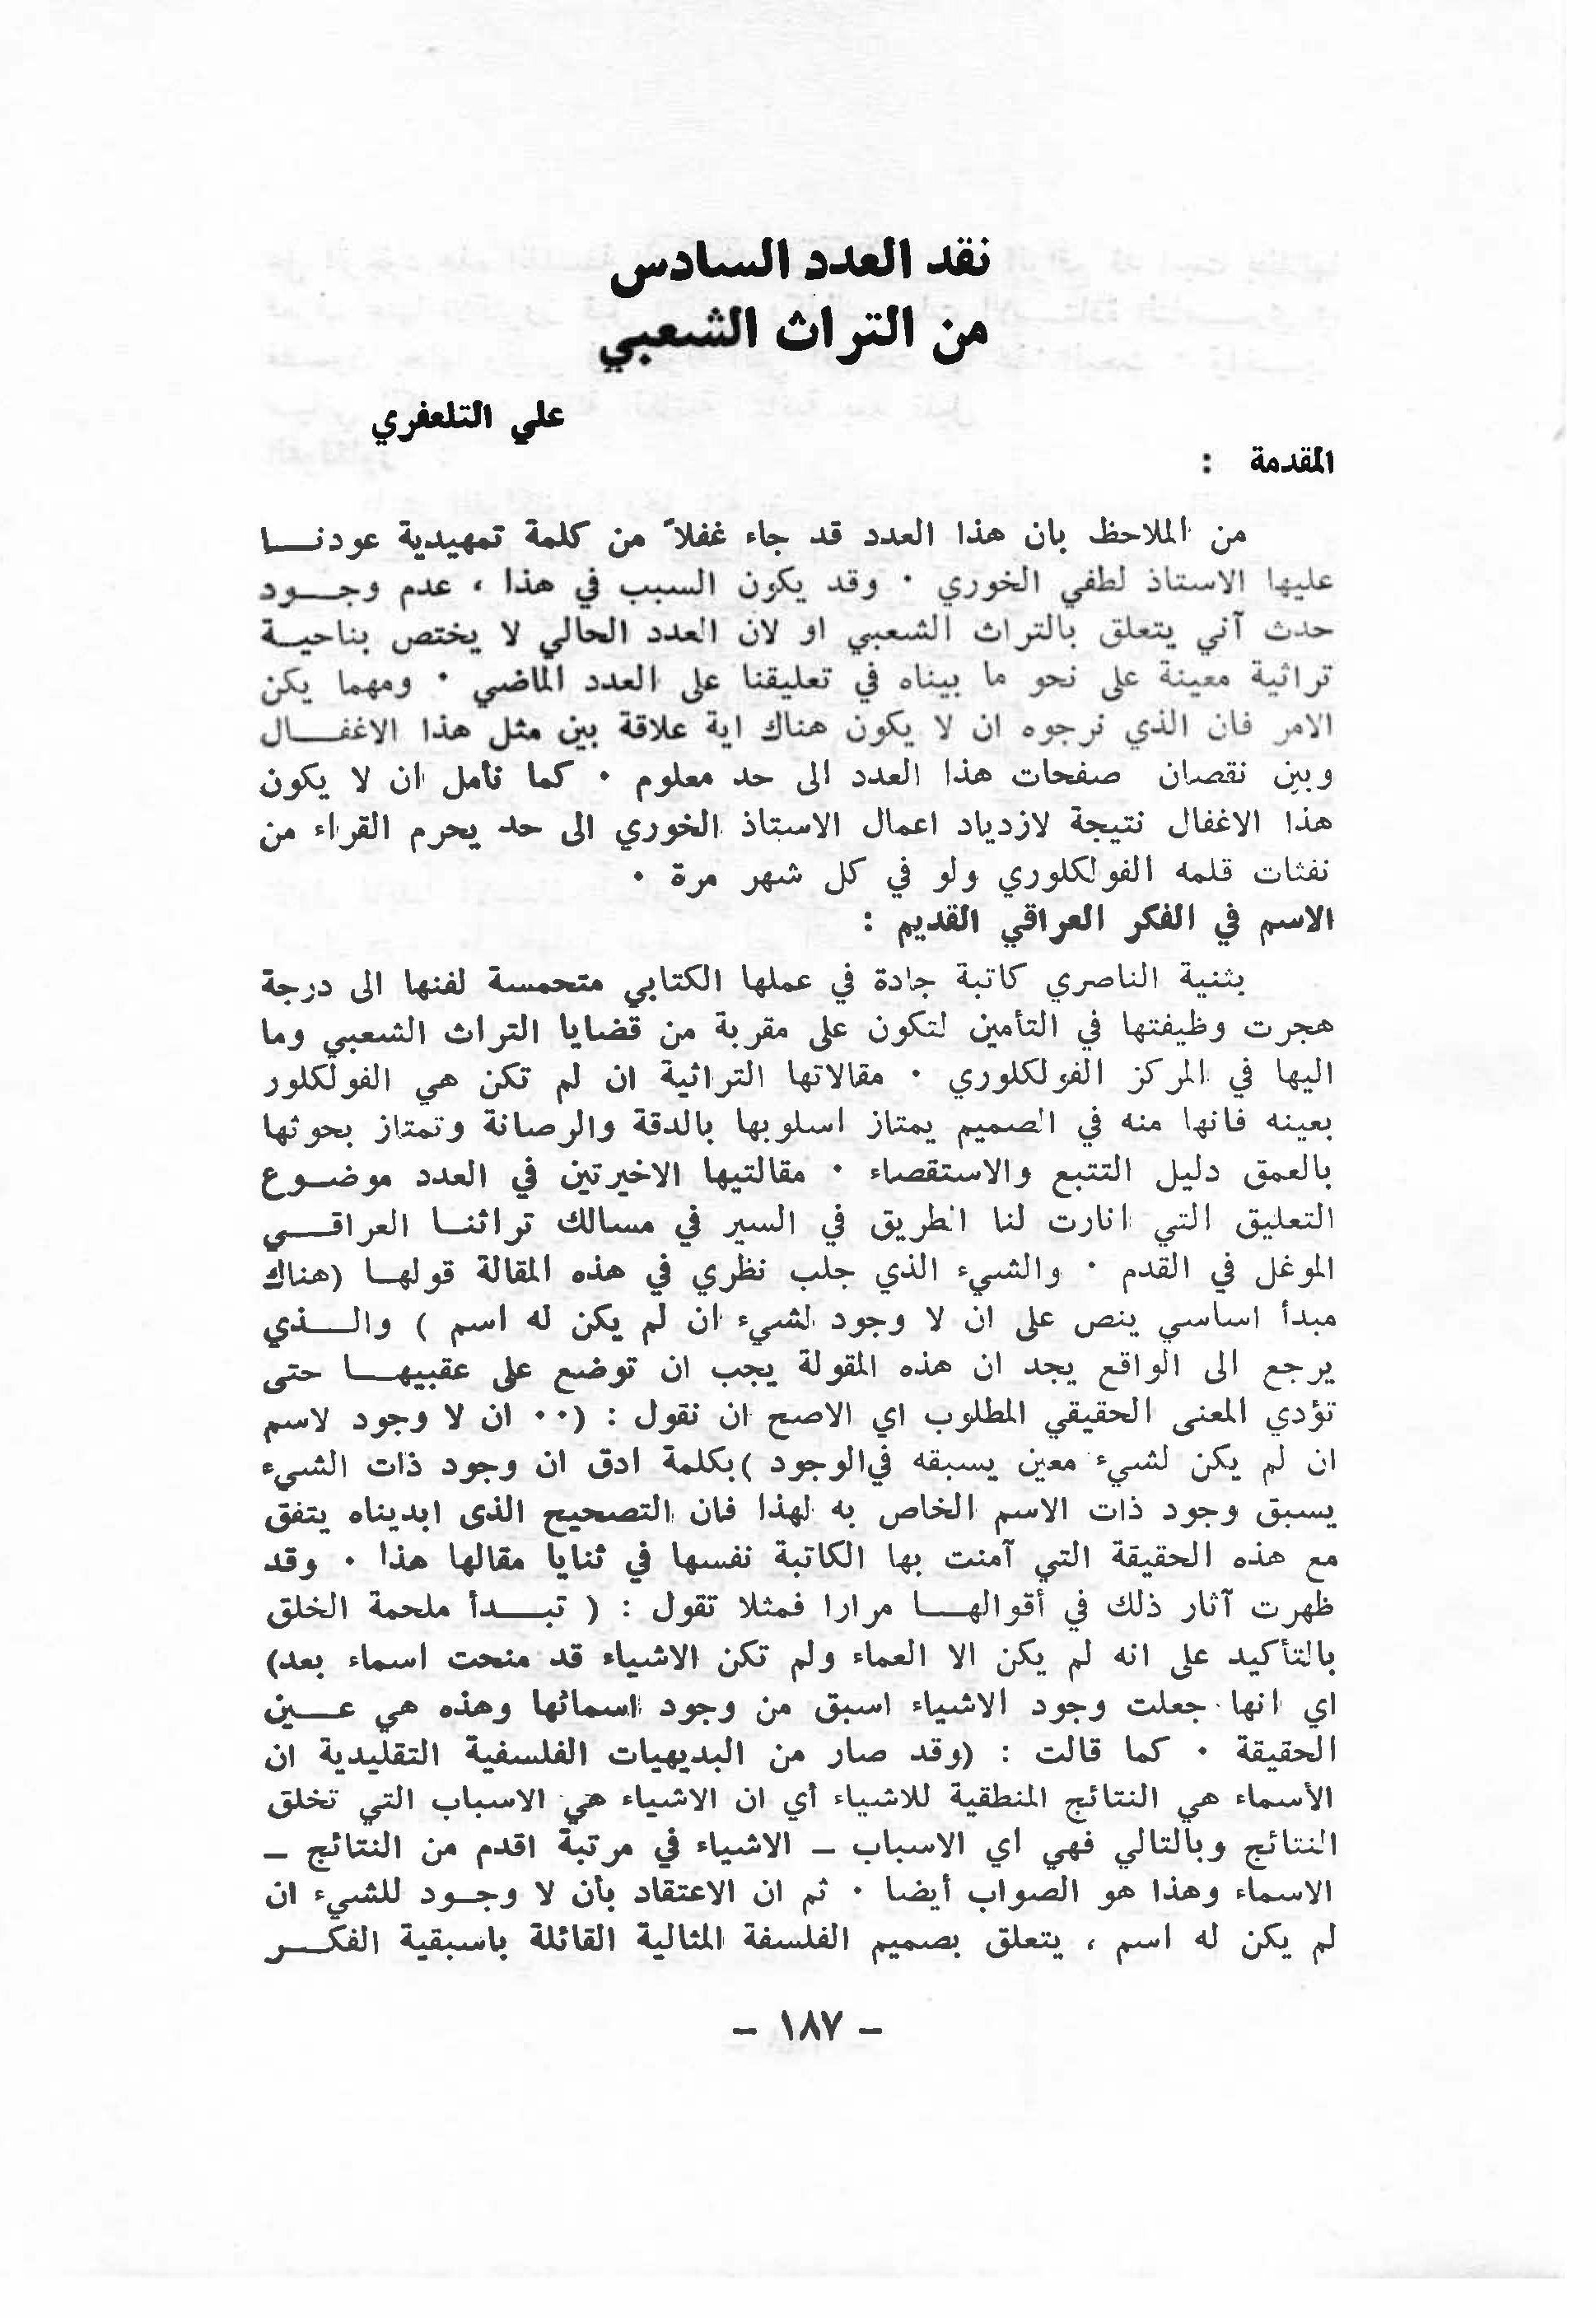 نقد العدد السادس
من التراث الشعبي
علي التلعفري
المقدمة :
من الملاحظ بان هذا العدد قد جاء غفلاً من كلمة تمهيدية عودنا
عليها الاستاذ لطفي الخوري . وقد يكون السبب في هذا ، عدم وجود
حدث آني يتعلق بالتراث الشعبي او لان العدد الحالي لا يختص بناحية
تراثية معينة على نحو ما بيناه في تعليقنا على العدد الماضي . ومهما يكن
الامر فان الذي نرجوه ان لا يكون هناك اية علاقة بين مثل هذا الاغفال
وبين نقصان صفحات هذا العدد الى حد معلوم . كما نأمل ان لا يكون
هذا الاغفال نتيجة لازدياد اعمال الاستاذ الخوري الى حد يحرم القراء من
نفثات قلمه الفولكلوري ولو في كل شهر مرة .
الاسم في الفكر العراقي القديم :
بثنية الناصري كاتبة جادة في عملها الكتابي متحمسة لفنها الى درجة
هجرت وظيفتها في التأمين لتكون على مقربة من قضايا التراث الشعبي وما
اليها في المركز الفولكلوري . مقالاتها التراثية ان لم تكن هي الفولكلور
بعينه فانها منه في الصميم يمتاز اسلوبها بالدقة والرصانة وتمتاز بحوثها
بالعمق دليل التتبع والاستقصاء . مقالتيها الاخيرتين في العدد موضوع
التعليق التي انارت لنا الطريق في السير في مسالك تراثنا العراقي
الموغل في القدم . والشيء الذي جلب نظري في هذه المقالة قولها (هناك
مبدأ اساسي ينص على ان لا وجود لشيء ان لم يكن له اسم ) والذي
يرجع الى الواقع يجد ان هذه المقولة يجب ان توضع على عقبيها حتى
تؤدي المعنى الحقيقي المطلوب اي الاصح ان نقول : (.. ان لا وجود لاسم
ان لم يكن لشيء معين يسبقه في الوجود )بكلمة ادق ان وجود ذات الشيء
يسبق وجود ذات الاسم الخاص به لهذا فان التصحيح الذى ابديناه يتفق
مع هذه الحقيقة التي آمنت بها الكاتبة نفسها في ثنايا مقالها هذا . وقد
ظهرت آثار ذلك في أقوالها مرارا فمثلا تقول : ( تبدأ ملحمة الخلق
بالتأكيد على انه لم يكن الا العماء ولم تكن الاشياء قد منحت اسماء بعد)
اي انها جعلت وجود الاشياء اسبق من وجود اسمائها وهذه هي عين
الحقيقة . كما قالت : (وقد صار من البديهيات الفلسفية التقليدية ان
الأسماء هي النتائج المنطقية للاشياء أي ان الاشياء هي الاسباب التي تخلق
النتائج وبالتالي فهي اي الاسباب – الاشياء في مرتبة اقدم من النتائج –
الاسماء وهذا هو الصواب أيضا . ثم ان الاعتقاد بأن لا وجود للشيء ان
لم يكن له اسم ، يتعلق بصميم الفلسفة المثالية القائلة باسبقية الفكر
– ١٨٧ –